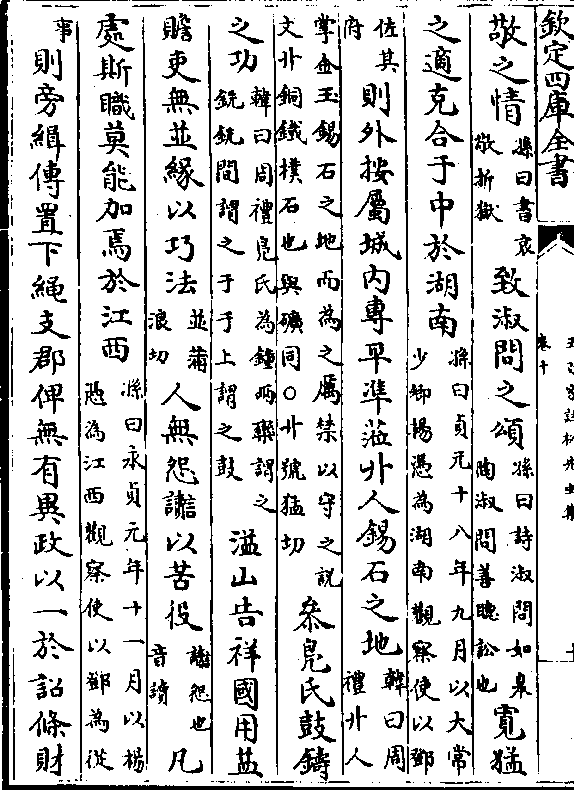 欽定四庫全書
卷十
敬之情孫曰書哀敬折獄致淑問之頌孫曰詩淑問如臯陶淑問善聽訟也寛猛
之適克合于中於湖南孫曰貞元十八年九月以大常少卿楊憑為湖南觀察使以鄧
佐其府則外按屬城内專平準蒞卝人錫石之地韓曰周禮卝人
掌金玉錫石之地而為之厲禁以守之説文卝銅鐵樸石也與礦同○卝號猛切叅鳬氏鼓鑄
之功韓曰周禮鳬氏為鍾兩欒謂之銑銑間謂之于于上謂之鼓溢山告祥國用益
贍吏無並緣以巧法並蒲浪切人無怨讟以苦役讟怨也音讀凡
處斯職莫能加焉於江西孫曰永貞元年十一月以楊憑為江西觀察使以鄧為從
事則旁緝傳置下繩支郡俾無有異政以一於詔條財